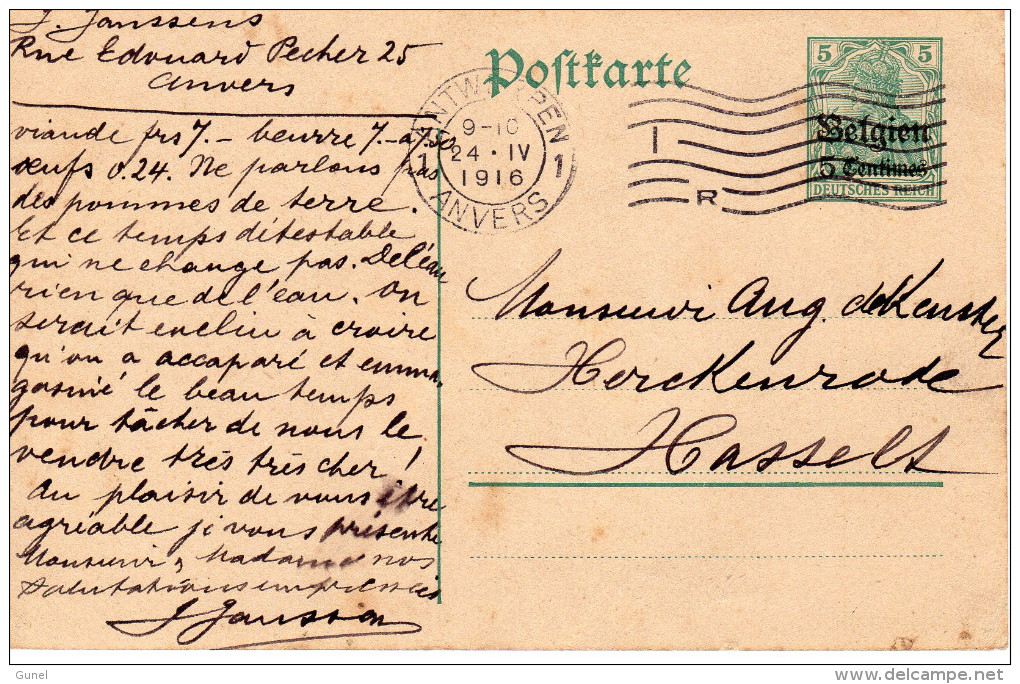 J. Janssens
Rue Edouard Pecher 25
Anvers
viande frs 7.- beurre 7.- à 7.50
œufs 0.24. Ne parlons pas
des pommes de terre.
Et ce temps détestable
qui ne change pas. De l'eau
rien que de l'eau. On
serait enclin à croire
qu'on a accaparé et emma-
gasiné le beau temps
pour tâcher de nous le
vendre très très cher!
Au plaisir de vous être
agréable je vous présente
Monsieur, Madame nos
salutations empressées
J Janssens
Postkarte
ANTWERPEN
9-10
1 24·IV 1
1916
ANVERS
I
R
5 5
Belgien
5 Centimes
DEUTSCHES REICH
Monsieur Aug. de
Herckenrode
Hasselt
Gunel
delcampe.net